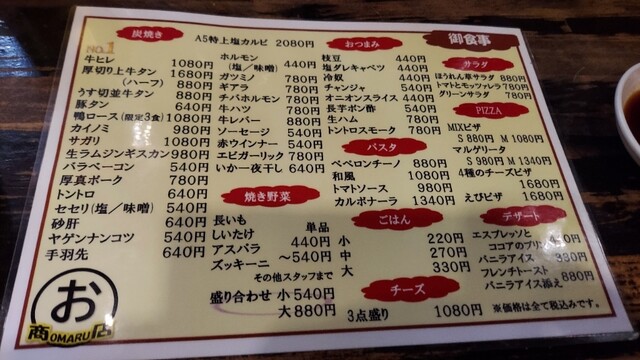 炭焼き
NO.1
牛ヒレ 1080円
厚切り上牛タン 1680円
(ハーフ) 880円
うす切並牛タン 880円
豚タン 640円
鴨ロース(限定3食) 1080円
カイノミ 980円
サガリ 1080円
生ラムジンギスカン 980円
バラベーコン 540円
厚真ポーク 780円
トントロ 640円
セセリ(塩/味噌) 540円
砂肝 640円
ヤゲンナンコツ 540円
手羽先 640円
A5特上塩カルビ 2080円
ホルモン
(塩/味噌) 440円
ガツミノ 780円
ギアラ 780円
チバホルモン 780円
牛ハツ 780円
牛レバー 880円
ソーセージ 540円
赤ウインナー 540円
エビガーリック 780円
いか一夜干し 640円
焼き野菜
単品
長いも
しいたけ 440円
アスパラ
ズッキーニ ~540円
その他スタッフまで
盛り合わせ 小 540円
大 880円
おつまみ
枝豆 440円
塩ダレキャベツ 440円
冷奴 440円
チャンジャ 540円
オニオンスライス 440円
長芋ポン酢 540円
生ハム 780円
トントロスモーク 780円
パスタ
ペペロンチーノ 880円
和風 1080円
トマトソース 980円
カルボナーラ 1340円
ごはん
小 220円
中 270円
大 330円
チーズ
3点盛り 1080円
御食事
サラダ
ほうれん草サラダ 880円
トマトとモッツァレラ 780円
グリーンサラダ 780円
PIZZA
MIXピザ
S 880円 M 1080円
マルゲリータ
S 980円 M 1340円
4種のチーズピザ
1680円
えびピザ 1680円
デザート
エスプレッソと
ココアのプリン
バニラアイス 330円
フレンチトースト
バニラアイス添え 880円
※価格は全て税込みです。
お
商OMARU店